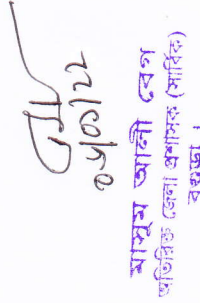 ০৮/০১/২২
মাসুম আলী বেগ
অতিরিক্ত জেলা প্রশাসক (সার্বিক)
বগুড়া ।